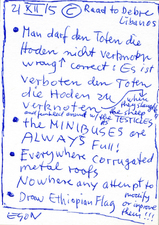 21 XII 15 © Road to Debre
Libanos
• Man darf den Toten die
Hoden nicht verknoten
wrong↑ correct: Es ist
verboten den Toten
die Hoden zu
verknoten
the TESTICLES
• the MINIBUSES are
ALWAYS Full!
• Everywhere corrugated
metal roofs
Nowhere any attempt to
beautify
or improve
them!!!
• Draw Ethiopian Flag
EGON